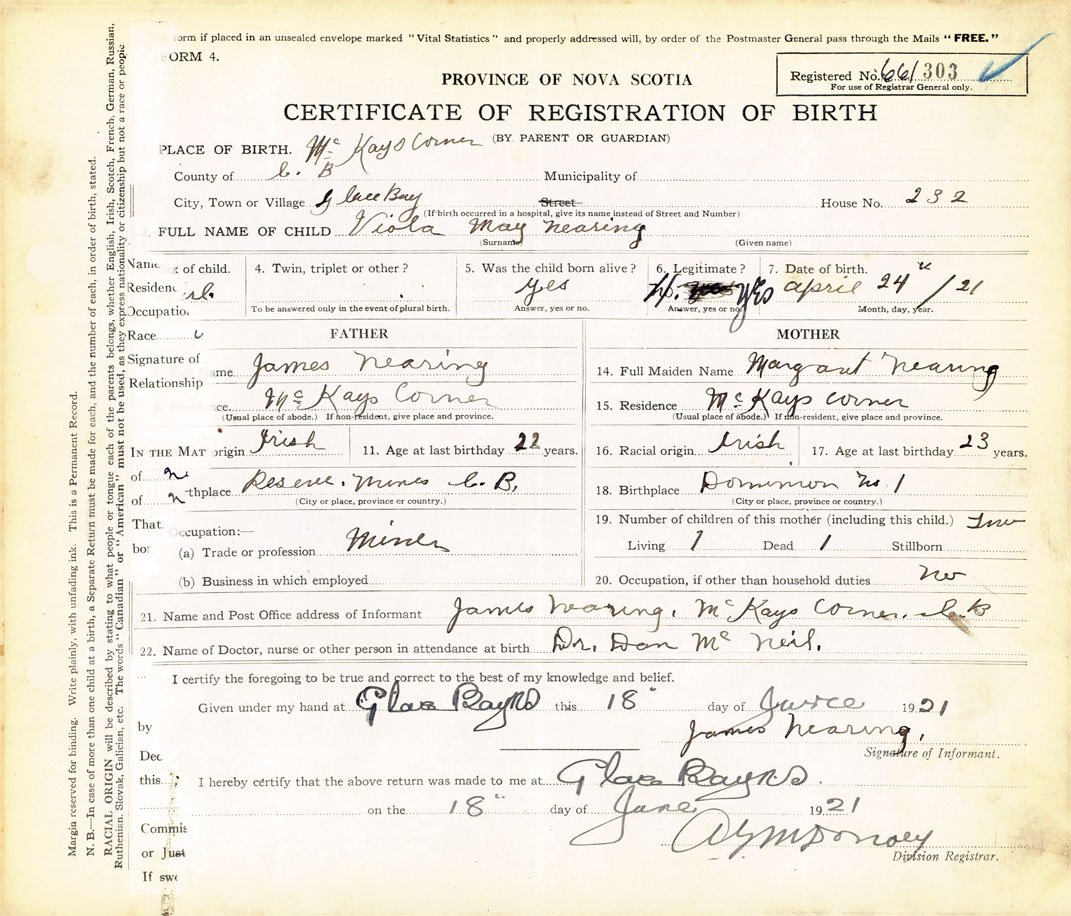 form if placed in an unsealed envelope marked "Vital Statistics" and properly addressed will, by order of the Postmaster General pass through the Mails "FREE."
ORM 4.
PROVINCE OF NOVA SCOTIA
Registered No. 661 303
For use of Registrar General only.
CERTIFICATE OF REGISTRATION OF BIRTH
(BY PARENT OR GUARDIAN)
PLACE OF BIRTH. Mc Kays Corner
County of C. B Municipality of
City, Town or Village Glace Bay Street House No. 232
(If birth occurred in a hospital, give its name instead of Street and Number)
FULL NAME OF CHILD Viola May Nearing
(Surname) (Given name)
Name x of child. 4. Twin, triplet or other? 5. Was the child born alive? 6. Legitimate? 7. Date of birth.
Residenc yes yes april 24th /21
Occupatio To be answered only in the event of plural birth. Answer, yes or no. Answer, yes or no. Month, day, year.
Race FATHER MOTHER
Signature of
Name James Nearing 14. Full Maiden Name Margaret Nearing
Relationship
Residence. Mc Kays Corner 15. Residence Mc Kays Corner
(Usual place of abode.) If non-resident, give place and province. (Usual place of abode.) If non-resident, give place and province.
IN THE MAT origin Irish 11. Age at last birthday 22 years. 16. Racial origin Irish 17. Age at last birthday 23 years.
of
thplace Reserve Mines C. B. 18. Birthplace Dominion No 1
of (City or place, province or country.) (City or place, province or country.)
That Occupation:— 19. Number of children of this mother (including this child.) Two
bo (a) Trade or profession Miner Living 1 Dead 1 Stillborn
(b) Business in which employed 20. Occupation, if other than household duties No
21. Name and Post Office address of Informant James Nearing, Mc Kays Corner. C. B
22. Name of Doctor, nurse or other person in attendance at birth Dr. Dan Mc Neil.
I certify the foregoing to be true and correct to the best of my knowledge and belief.
Given under my hand at Glace Bay NS this 18" day of June 1921
by James Nearing.
Signature of Informant.
Dec
this I hereby certify that the above return was made to me at Glace Bay NS.
on the 18" day of June 1921
Commis
or Just Division Registrar.
If swo
Margin reserved for binding. Write plainly, with unfading ink. This is a Permanent Record.
N. B.—In case of more than one child at a birth, a Separate Return must be made for each, and the number of each, in order of birth, stated.
RACIAL ORIGIN will be described by stating to what people or tongue each of the parents belongs, whether English, Irish, Scotch, French, German, Russian,
Ruthenian, Slovak, Galician, etc. The words "Canadian" or "American" must not be used, as they express nationality or citizenship but not a race or people